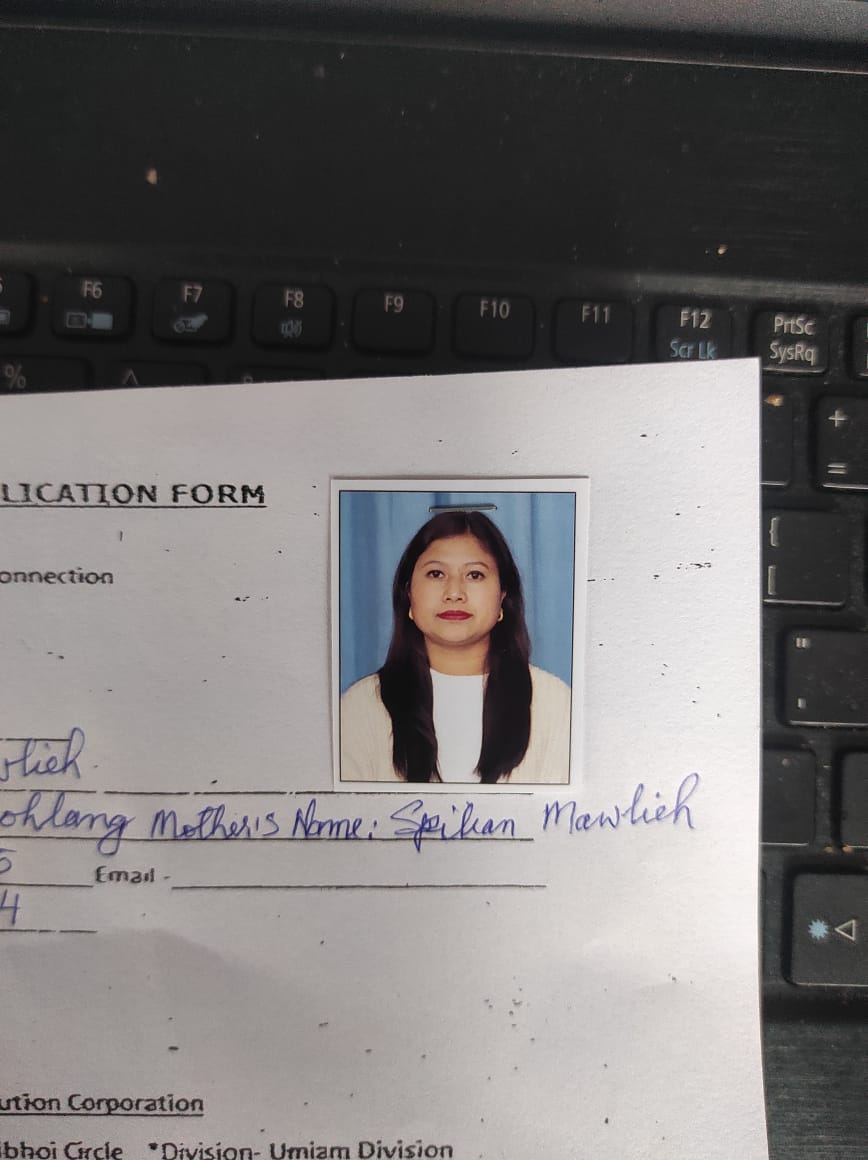 F6 F7 F8 F9 F10 F11 F12 PrtSc
Scr Lk SysRq
% ^
+
=
{
[
"
'
LICATION FORM
onnection
wlieh
ohlang Mother's Name: Spilian Mawlieh
5 Email -
4
ution Corporation
ibhoi Circle *Division- Umiam Division